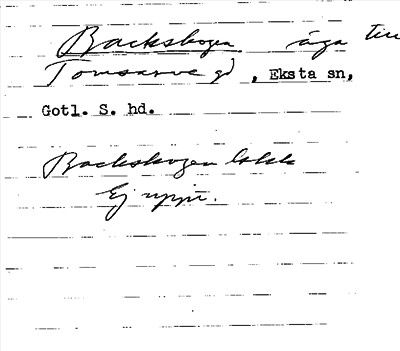 Backskogen äga till
Tomsarve gd, Eksta sn,
Gotl. S. hd.
Backskogen lokk
Ej uppr.